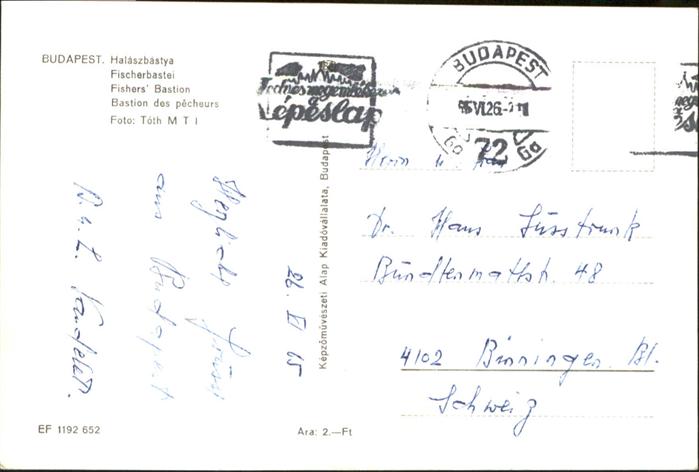 BUDAPEST. Halászbástya
Fischerbastei
Fishers' Bastion
Bastion des pêcheurs
Foto: Tóth M T I
képeslap
BUDAPEST
65 VI 26
72
Herzliche Grüsse
aus Budapest
26. VI 65
Képzőművészeti Alap Kiadóvállalata, Budapest
Herrn u. Frau
Dr. Hans Süsstrunk
Bündtenmattstr. 48
4102 Binningen. Bl.
Schweiz
EF 1192 652
Ara: 2.—Ft